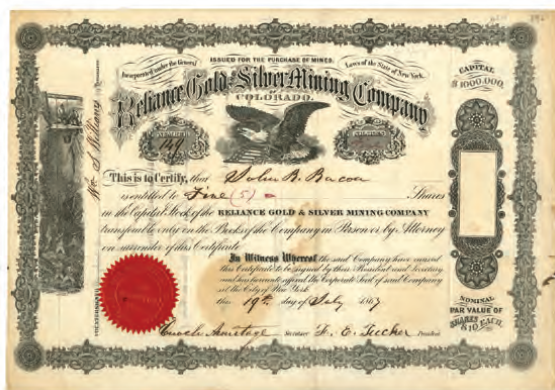 ISSUED FOR THE PURCHASE OF MINES.
Incorporated under the General Laws of the State of New York.
Reliance Gold & Silver Mining Company
OF
COLORADO.
CAPITAL
$1000.000.
149
This is to Certify, that John B. Bacon
is entitled to Five (5) Shares
in the Capital Stock of the RELIANCE GOLD & SILVER MINING COMPANY
transferable only on the Books of the Company in Person or by Attorney
on surrender of this Certificate
In Witness Whereof the said Company have caused
this Certificate to be signed by their President and Secretary
and have hereunto affixed the Corporate Seal of said Company
at the City of New York
this 19th day of July 1867
Enoch Secretary F. E. Tucker President
NOMINAL
PAR VALUE OF
SHARES
$10 EACH.